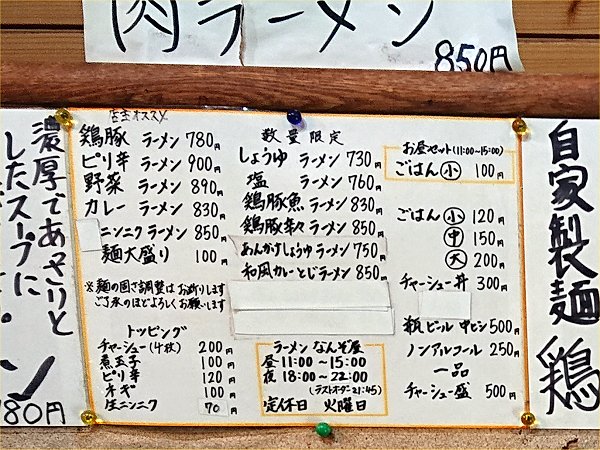 肉ラーメン
850円
濃厚であさりと
したスープに
80円
店主オススメ
鶏豚 ラーメン 780円
ピリ辛 ラーメン 900円
野菜 ラーメン 890円
カレー ラーメン 830円
ニンニク ラーメン 850円
麺大盛り 100円
※麺の固さ調整はお断りします
ご了承のほどよろしくお願いします
トッピング
チャーシュー(4枚) 200円
煮玉子 100円
ピリ辛 120円
ネギ 100円
生ニンニク 70円
数量限定
しょうゆ ラーメン 730円
塩 ラーメン 760円
鶏豚魚 ラーメン 830円
鶏豚辛々 ラーメン 850円
あんかけしょうゆ ラーメン 750円
和風カレーとじ ラーメン 850円
ラーメン なんぞ屋
昼 11:00〜15:00
夜 18:00〜22:00
(ラストオーダー21:45)
定休日 火曜日
お昼セット(11:00〜15:00)
ごはん 小 100円
ごはん 小 120円
中 150円
大 200円
チャーシュー丼 300円
瓶ビール 中ビン 500円
ノンアルコール 250円
一品
チャーシュー盛 500円
自家製麺 鶏